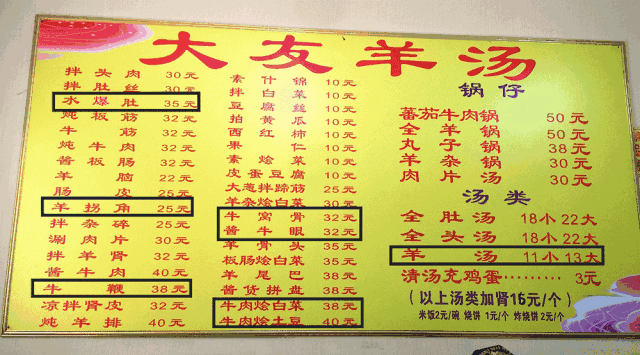 大友羊汤
拌头肉 30元
拌肚丝 30元
水爆肚 35元
炖板筋 32元
牛筋 32元
炖牛肉 32元
酱板肠 32元
羊脑 22元
肠皮 25元
羊拐角 25元
拌杂碎 25元
涮肉片 30元
拌羊肾 32元
酱牛肉 40元
牛鞭 38元
凉拌肾皮 32元
炖羊排 40元
素什锦 10元
拌白菜 10元
豆腐丝 10元
拍黄瓜 10元
西红柿 10元
果仁 10元
素烩菜 10元
皮蛋豆腐 10元
大葱拌蹄筋 25元
羊杂烩白菜 30元
牛窝骨 32元
酱牛眼 32元
羊骨头 35元
板肠烩白菜 35元
羊尾巴 38元
酱货拼盘 38元
牛肉烩白菜 38元
牛肉烩土豆 40元
锅仔
蕃茄牛肉锅 50元
全羊锅 50元
丸子锅 38元
羊杂锅 30元
肉片汤 30元
汤类
全肚汤 18小22大
全头汤 18小22大
羊汤 11小13大
清汤充鸡蛋……… 3元
（以上汤类加肾16元/个）
米饭2元/碗 烧饼 1元/个 炸烧饼 2元/个